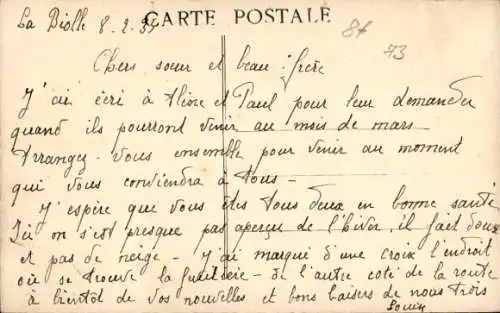 La Biolle 8.2.37 CARTE POSTALE
84
73
Chers soeur et beau-frère
J'ai écri à Alice et Paul pour leur demander
quand ils pourront venir au mois de mars
Arrangez-vous ensemble pour venir au moment
qui vous conviendra à tous -
J'espère que vous êtes tous deux en bonne santé
Ici on s'est presque pas aperçu de l'hiver, il fait doux
et pas de neige - J'ai marqué d'une croix l'endroit
où se trouve la - de l'autre coté de la route
à bientôt de vos nouvelles et bons baisers de nous trois
Louis